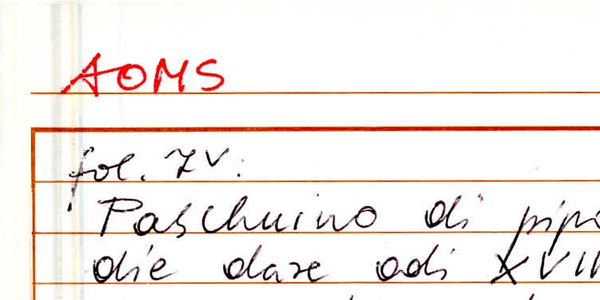 AOMS
fol. 7v.
Paschuino di pipi
die dare adi XVIII